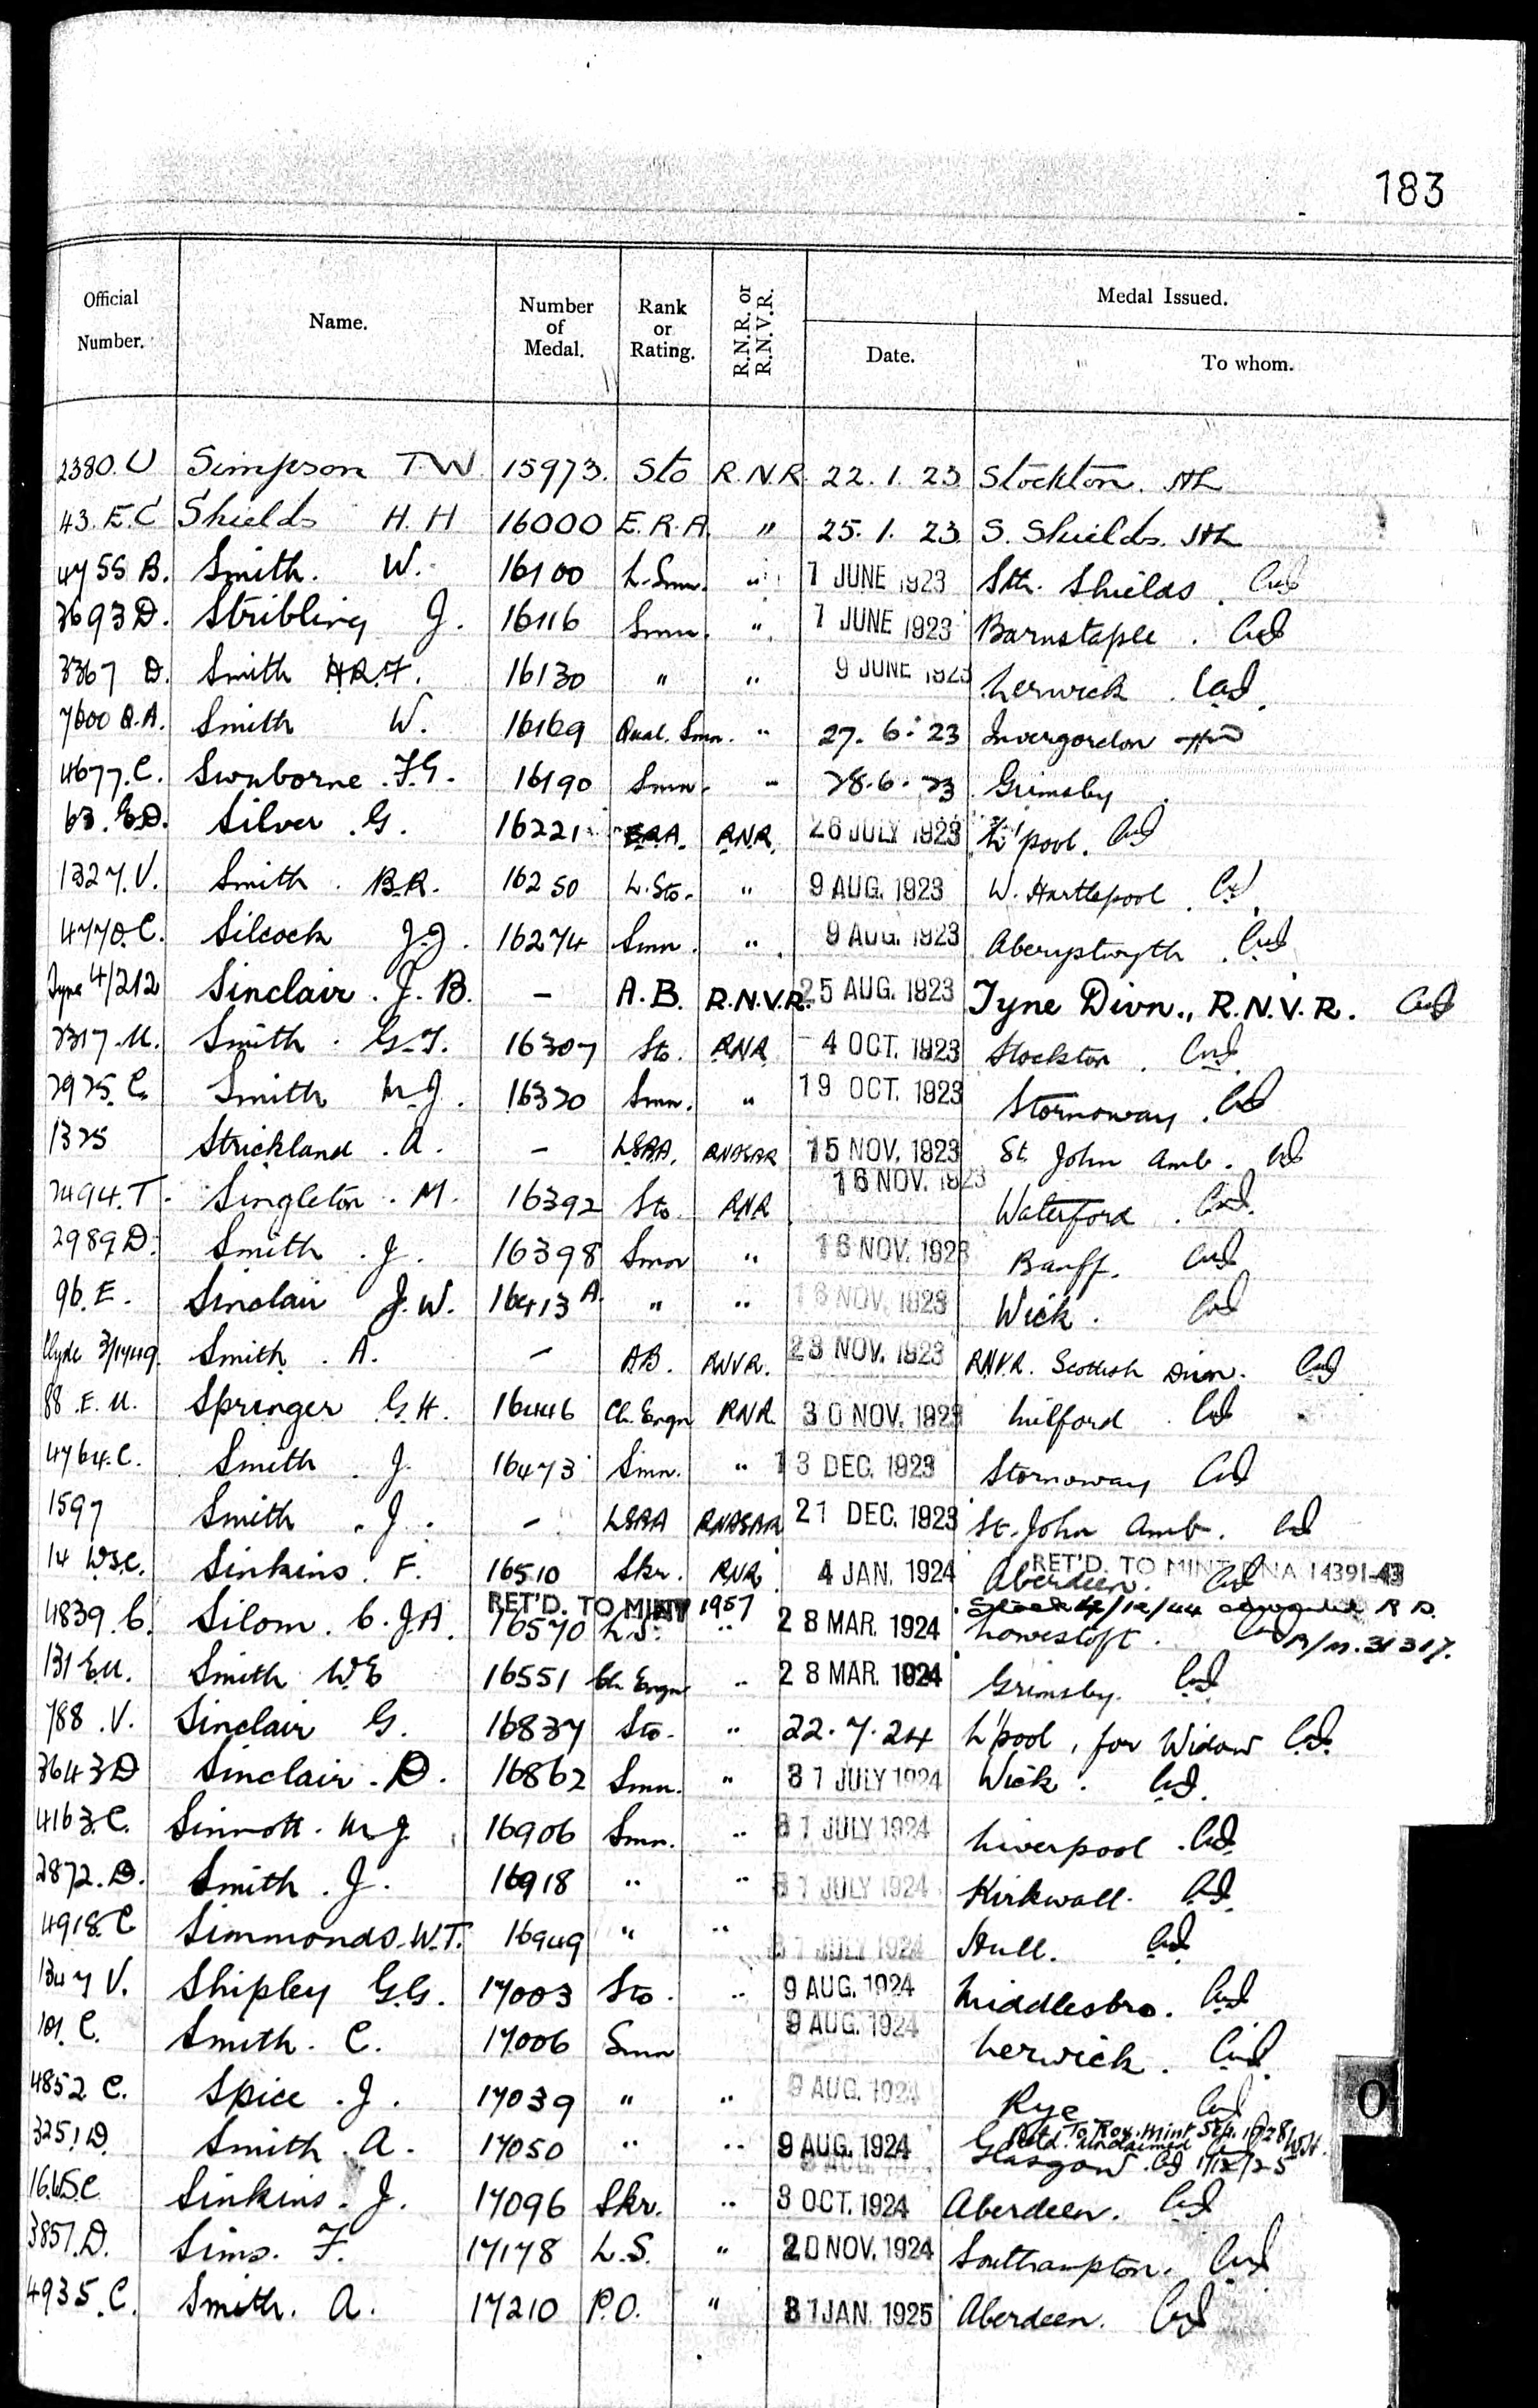 183
Official Number. Name. Number of Medal. Rank or Rating. R.N.R. or R.N.V.R. Medal Issued.
Date. To whom.
2380. U Simpson T.W. 15973. Sto R.N.R. 22. 1. 23. Stockton.
43. E.C Shields H. H 16000 E.R.A. " 25. 1. 23. S. Shields.
4755 B. Smith. W. 16100 L. Smn. " 7 JUNE 1923 Sth. Shields.
3693 D. Stribling J. 16116 Smn. " 7 JUNE 1923 Barnstaple.
3367 D. Smith H.R.F. 16130 " " 9 JUNE 1923 Lerwick.
7600 Q.A. Smith W. 16169 Qual. Smn. " 27. 6. 23 Invergordon
4677. C. Swnborne. F.G. 16190 Smn. " 28. 6. 23 Grimsby
63. E.D. Silver. G. 16221 E.R.A. R.N.R. 26 JULY 1923 L'pool.
1327. V. Smith. B.R. 16250 L. Sto. " 9 AUG. 1923 W. Hartlepool.
4770. C. Silcock J.J. 16274 Smn. " 9 AUG. 1923 Aberystwyth.
Tyne 4/212 Sinclair. J. B. - A.B. R.N.V.R. 25 AUG. 1923 Tyne Divn., R.N.V.R.
2317. U. Smith. G.T. 16307 Sto. RNR - 4 OCT. 1923 Stockton.
2925. C. Smith M.J. 16320 Smn. " 19 OCT. 1923 Stornoway.
1325 Strickland. A. - LSBA. RNASBR 15 NOV. 1923 St. John Amb.
2494. T. Singleton. M. 16392 Sto. RNR 16 NOV. 1923 Waterford.
2989 D. Smith. J. 16398 Smn " 16 NOV. 1923 Banff.
96. E. Sinclair J. W. 16413 A. " " 16 NOV. 1923 Wick.
Clyde 3/1749. Smith. A. - AB. RNVR. 28 NOV. 1923 RNVR. Scottish Divn.
88. E. U. Springer G. H. 16446 Ch. Engn RNR. 30 NOV. 1923 Milford.
4764. C. Smith. J. 16473 Smn. " 13 DEC. 1923 Stornoway
1597 Smith. J. - LSBA RNASBR 21 DEC. 1923 St. John Amb.
14 W.S.C. Sinkins. F. 16510 Skr. RNR. 4 JAN. 1924 Aberdeen. RET'D. TO MINT RNA 14391-43
RET'D. TO MINT 1957
4839. C. Silom. C. J.A. 16570 L.S. " 28 MAR. 1924 Lowestoft.
131 E.U. Smith W.E 16551 Ch. Engn " 28 MAR. 1924 Grimsby.
788. V. Sinclair G. 16837 Sto. " 22. 7. 24 L'pool, for Widow
3643 D Sinclair. D. 16862 Smn. " 31 JULY 1924 Wick.
4163. C. Sinnott. M J. 16906 Smn. " 31 JULY 1924 Liverpool.
2872. D. Smith. J. 16918 " " 31 JULY 1924 Kirkwall.
4918. C Simmonds. W.T. 16949 " " 31 JULY 1924 Hull.
1347 V. Shipley G.G. 17003 Sto. " 9 AUG. 1924 Middlesbro.
101. C. Smith. C. 17006 Smn 9 AUG. 1924 Lerwick.
4852 C. Spice. J. 17039 " " 9 AUG. 1924 Rye
3251 D. Smith. A. 17050 " " 9 AUG. 1924 Glasgow. To Roy. Mint Sep. 1928
16. W.S.C. Sinkins. J. 17096 Skr. " 3 OCT. 1924 Aberdeen.
3857. D. Sims. F. 17178 L.S. " 20 NOV. 1924 Southampton.
4935. C. Smith. A. 17210 P.O. " 31 JAN. 1925 Aberdeen.